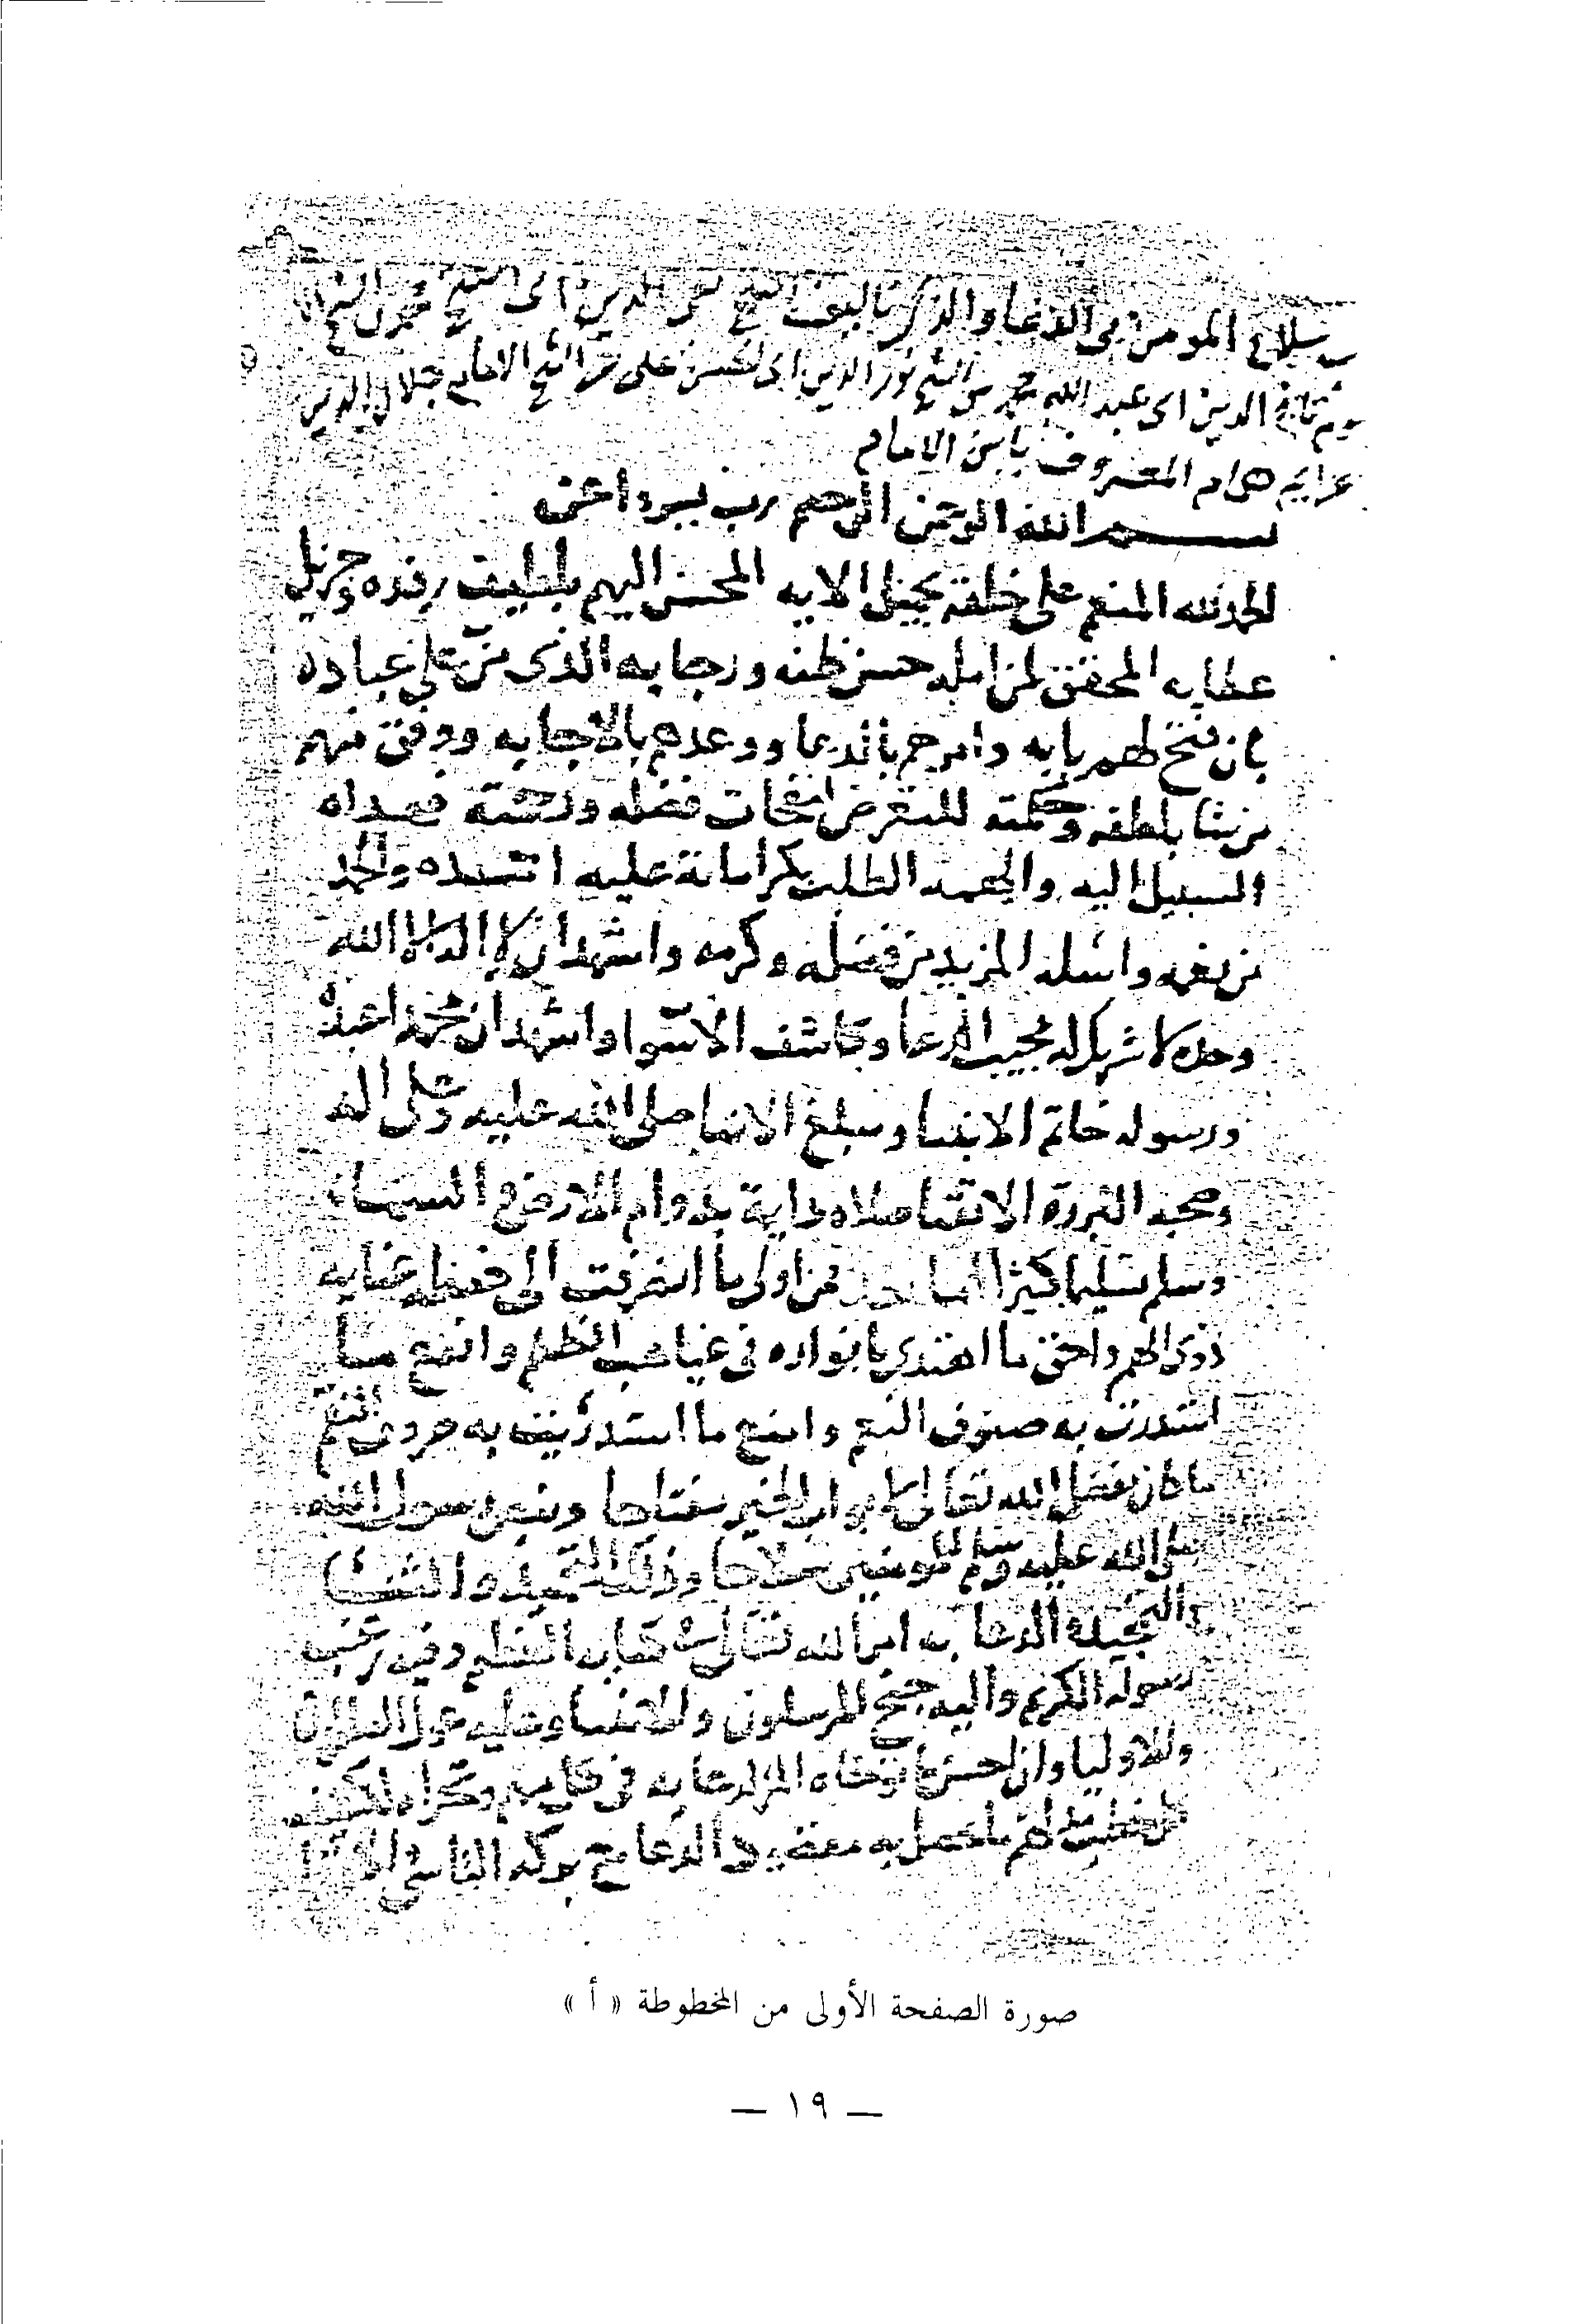 سلاح المومن في الادعا والذكر تاليف الشيخ تقى الدين ابى الفتح محمد
تاج الدين ابى عبد الله محمد بن الشيخ نور الدين ابى الحسن على بن الشيخ الامام جلال الدين
همام المعروف بابن الامام
بسم الله الرحمن الرحيم رب يسر واعن
الحمد لله المنعم على خلقه بجميل الايه المحسن اليهم بلطيف رفده وجزيل
عطايه المحقق لمن امله حسن ظنه ورجايه الذى من على عباده
بان فتح لهم بابه وامرهم بالدعا ووعدهم بالاجابه ووفق منهم
من شا بلطفه وحكمته للتعرض لنفحات فضله ورحمته فهداه
السبيل اليه والهمه الطلب تكرما منه عليه احمده والحمد
من نعمه واسله المزيد من فضله وكرمه واشهد ان لا اله الا الله
وحده لا شريك له مجيب الدعا وكاشف الاسوا واشهد ان محمدا عبده
ورسوله خاتم الانبيا ومبلغ الانبا صلى الله عليه وعلى اله
وصحبه البررة الاتقيا صلاه دايمة بدوام الارض والسماء
وسلم تسليما كثيرا اما بعد فمن اولى ما انصرفت الى حفظه عنايه
ذوى الهمم واحق ما اهتدى بانواره فى غياهب الظلم وانفع ما
استدرت به صنوف النعم وامنع ما استدريت به صروف النقم
ما كان بفضل الله تعالى لابواب الخير مفتاحا وبنص رسول الله
صلى الله عليه وسلم للمومنين سلاحا وذلك التحميد والثناء
والتمجيد والدعا به امر الله تعالى فى كتابه العظيم وفيه رغب
رسوله الكريم واليه جنح المرسلون والانبيا وعليه عول الصالحون
والاوليا وان احسن ما توخاه المرء لدعايه فى كل مهم وتحراه لكشف
كل خطب مدلهم ما يحصل به مقصود الدعا مع بركه التاسى
صورة الصفحة الأولى من المخطوطة « أ »
— ١٩ —